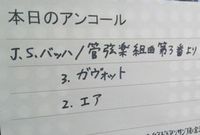 本日のアンコール
J.S.バッハ/管弦楽組曲第3番より
3. ガヴォット
2. エア